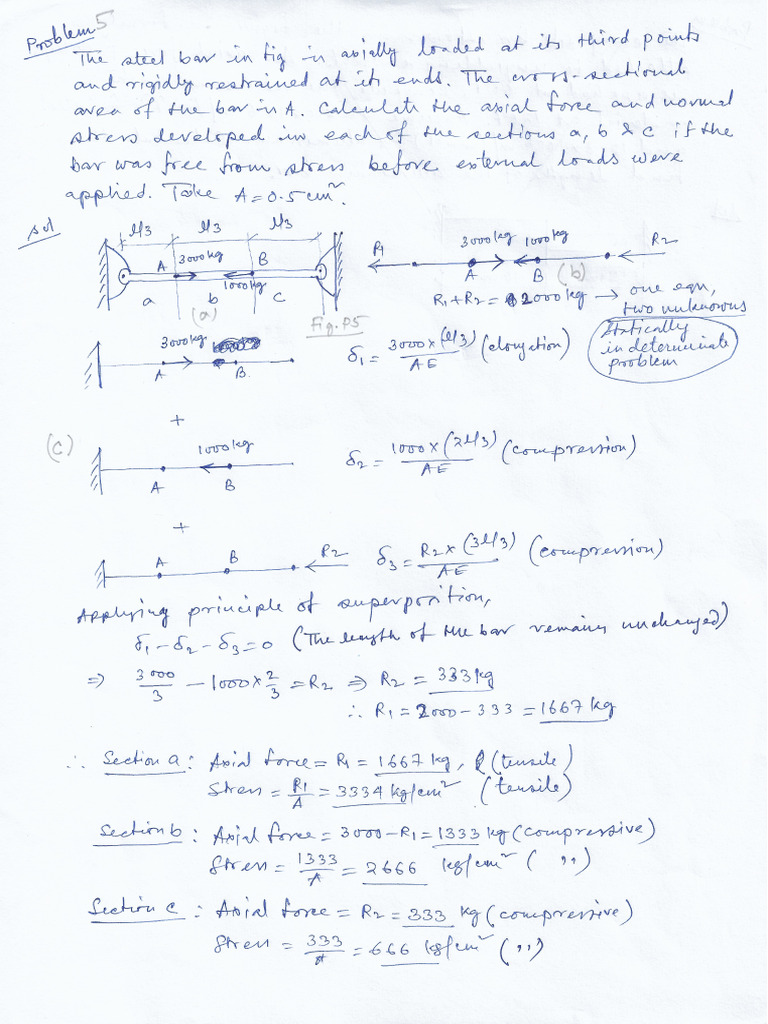 Problem 5
The steel bar in fig in axially loaded at its third points
and rigidly restrained at its ends. The cross-sectional
area of the bar in A. Calculate the axial force and normal
stress developed in each of the sections a, b & c if the
bar was free from stress before external loads were
applied. Take A=0.5cm².
Sol
l/3 l/3 l/3
A 3000kg B
1000kg
a b c
(a)
Fig. P5
R1 3000kg 1000kg R2
A B (b)
R1+R2 = 2000kg → one eqn,
two unknowns
statically
indeterminate
problem
3000kg
A B
δ1 = 3000×(l/3)/AE (elongation)
+
(c)
1000kg
A B
δ2 = 1000×(2l/3)/AE (compression)
+
A B R2
δ3 = R2×(3l/3)/AE (compression)
Applying principle of superposition,
δ1-δ2-δ3=0 (The length of the bar remains unchanged)
⇒ 3000/3 - 1000×2/3 = R2 ⇒ R2 = 333kg
∴ R1 = 2000-333 = 1667kg
∴ Section a: Axial force = R1 = 1667 kg, (tensile)
Stress = R1/A = 3334 kg/cm² (tensile)
Section b: Axial force = 3000-R1 = 1333 kg (compressive)
Stress = 1333/A = 2666 kg/cm² ( ,, )
Section c: Axial force = R2 = 333 kg (compressive)
Stress = 333/A = 666 kg/cm² ( ,, )